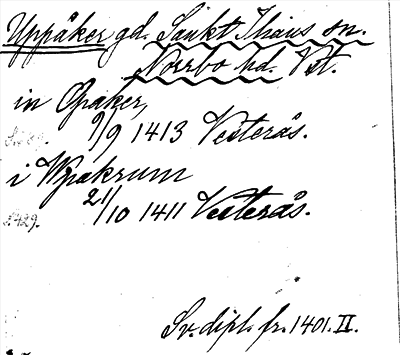 Uppåker gd. Sankt Ilians sn.
Norrbo hd. Vst.
in Opaker,
9/9 1413 Vesterås.
i Wpakrum
21/10 1411 Vesterås.
s. 429.
Sv. dipl. fr. 1401. II.